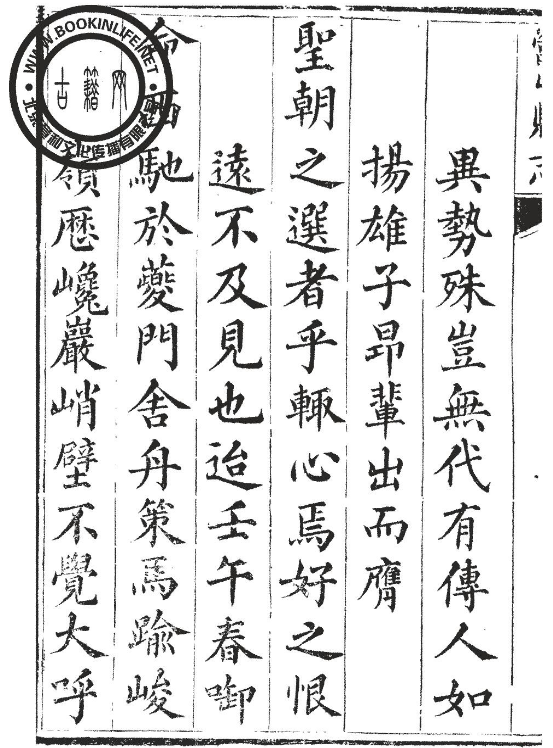 異勢殊豈無代有傳人如
揚雄子昂輩出而膺
聖朝之選者乎輙心焉好之恨
遠不及見也迨壬午春啣
馳於夔門舍舟策馬踰峻
嶺歴巉巖峭壁不覺大呼
WWW.BOOKINLIFE.NET
古籍网